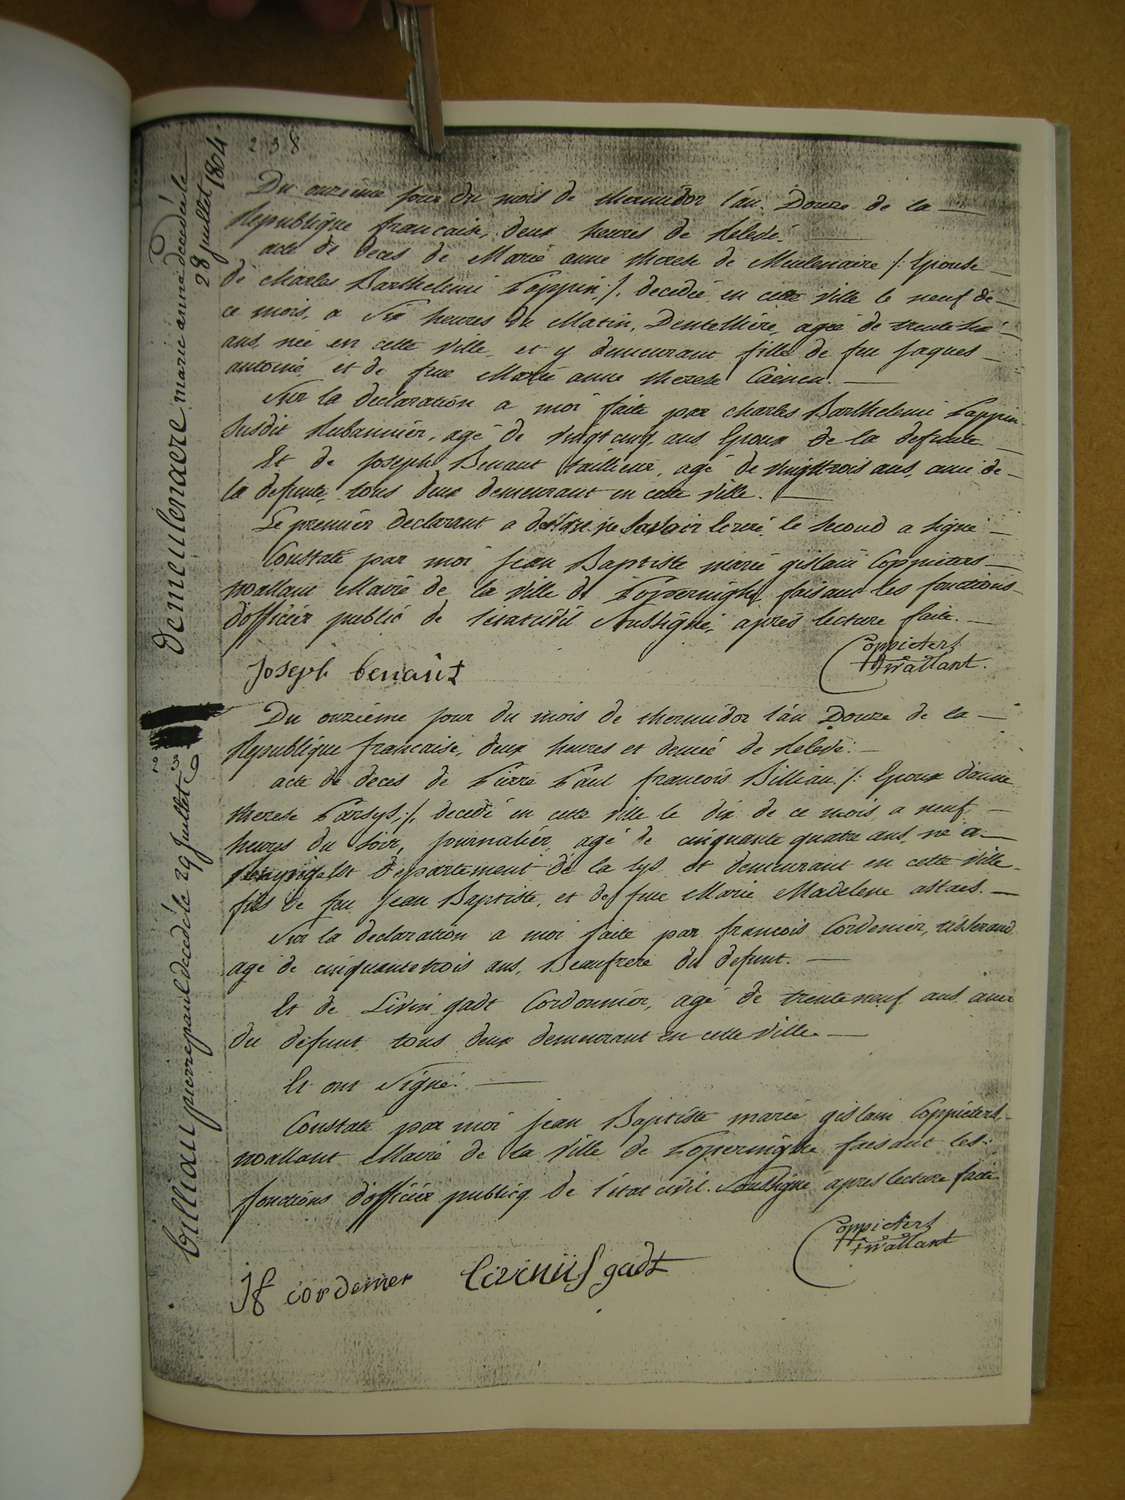 238
demeulenaere marie anne decedé le
28 juillet 1804.
Du onzième jour du mois de thermidor l'an Douze de la
République française, deux heures de relevé.
acte de deces de Marie anne therese de Meulenaire /: Epouse
de Charles Barthelemi Toppin :/ decedée en cette ville le neuf de
ce mois, a Six heures du Matin, Dentellière, agée de trente
ans, née en cette ville, et y demeurant fille de feu Jaques
antoine et de feue Marie anne therese
Sur la declaration a moi faite par Charles Barthelemi Toppin
Susdit Rubannier, agé de vingt cinq ans Epoux de la defunte
Et de Joseph Benaut tailleur, agé de vingttrois ans, ami de
la defunte, tous deux demeurant en cette ville.
Le premier declarant a le second a signé
Constaté par moi Jean Baptiste marie gislain Coppieters
wallant Maire de la ville de Poperinghe faisant les fonctions
d'officier public de l'etat civil Soussigné, après lecture faite.
Joseph benaut
Coppieters
Wallant.
239
billiau pierre paul decedé le 29 Juillet
Du onzième jour du mois de thermidor l'an Douze de la
République française, deux heures et demie de relevé.
acte de deces de Pierre Paul françois Billiau /: Epoux d'anne
therese Parsys :/ decedé en cette ville le dix de ce mois, a neuf
heures du Soir, journalier, agé de cinquante quatre ans, né a
département de la lys et demeurant en cette ville
fils de feu Jean Baptiste, et de feue Marie Madelene astaes.
Sur la declaration a moi faite par françois Cordenier, tisserand
agé de cinquantetrois ans, Beaufrere du defunt.
Et de Livin gadt Cordonnier, agé de trenteneuf ans, ami
du defunt tous deux demeurant en cette ville
Et ont Signé.
Constaté par moi Jean Baptiste marie gislain Coppieters
wallant Maire de la ville de Poperinghe faisant les
fonctions d'officier publicq de l'etat civil Soussigné après lecture faite
Jf cordenier livinus gadt
Coppieters
Wallant